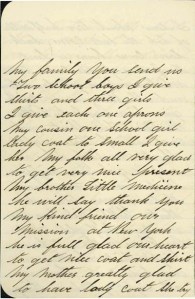 My family you send us
Two school boys I give
shirt and three girls
I give each one aprons
My cousin one school girl
lady coat to small I give
her My folk all very glad
to get very nice present
My brother Little Medicine
she will say thank you
My kind friend our
Mission at New York
he is full glad one heart
to get nice coat and shirt
My mother greatly glad
to have lady coat